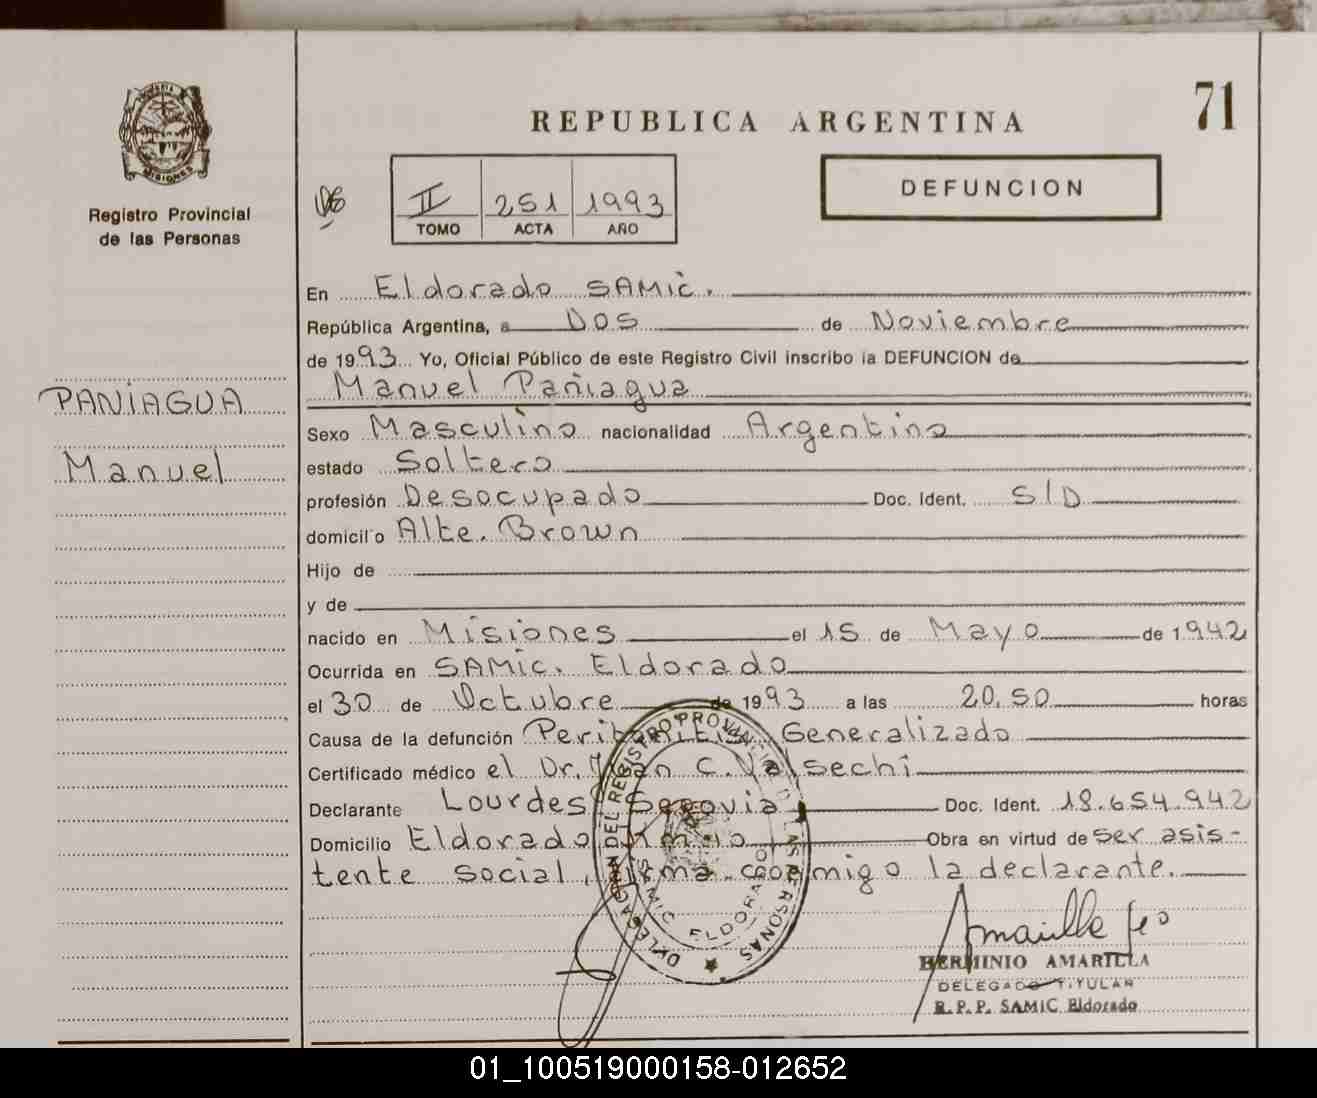 71
REPUBLICA ARGENTINA
MISIONES
Registro Provincial
de las Personas
II 251 1993
TOMO ACTA AÑO
DEFUNCION
PANIAGUA
Manuel
En Eldorado SAMic.
República Argentina, a Dos de Noviembre
de 1993 Yo, Oficial Público de este Registro Civil inscribo la DEFUNCION de
Manuel Pañiagua
Sexo Masculino nacionalidad Argentino
estado Soltero
profesión Desocupado Doc. Ident. S/D
domicilio Alte. Brown
Hijo de
y de
nacido en Misiones el 15 de Mayo de 1942
Ocurrida en SAMic. Eldorado
el 30 de Octubre de 1993 a las 20,50 horas
Causa de la defunción Peritonitis Generalizado
Certificado médico el Dr. Juan C. Valsechi
Declarante Lourdes Segovia Doc. Ident. 18.654.942
Domicilio Eldorado Mnes Obra en virtud de ser asis-
tente social, firma conmigo la declarante.
DELEGACION DEL REGISTRO PROVINCIAL DE LAS PERSONAS
SAMIC ELDORADO
HERMINIO AMARILLA
DELEGADO TITULAR
R.P.P. SAMIC Eldorado
01_100519000158-012652